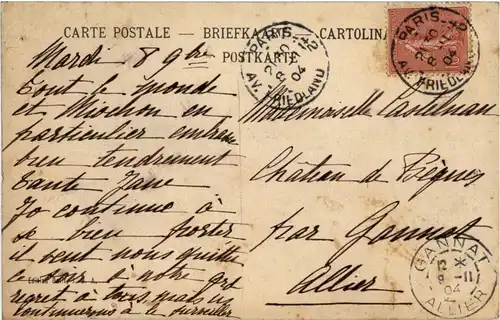 CARTE POSTALE — BRIEFKAART — CARTOLINA
POSTKARTE
PARIS
AV. FRIEDLAND
PARIS
AV. FRIEDLAND
Mardi 8 9bre
Tout le monde
et Miochon en
particulier embrasse
bien tendrement
Tante Jane
Jo continue à
se bien porter
il vient nous quitter
ce soir à notre gd
regret à tous mais on
continuerons à le surveiller
Mademoiselle Castelnau
Château de Bègues
par Gannat
Allier
GANNAT
ALLIER